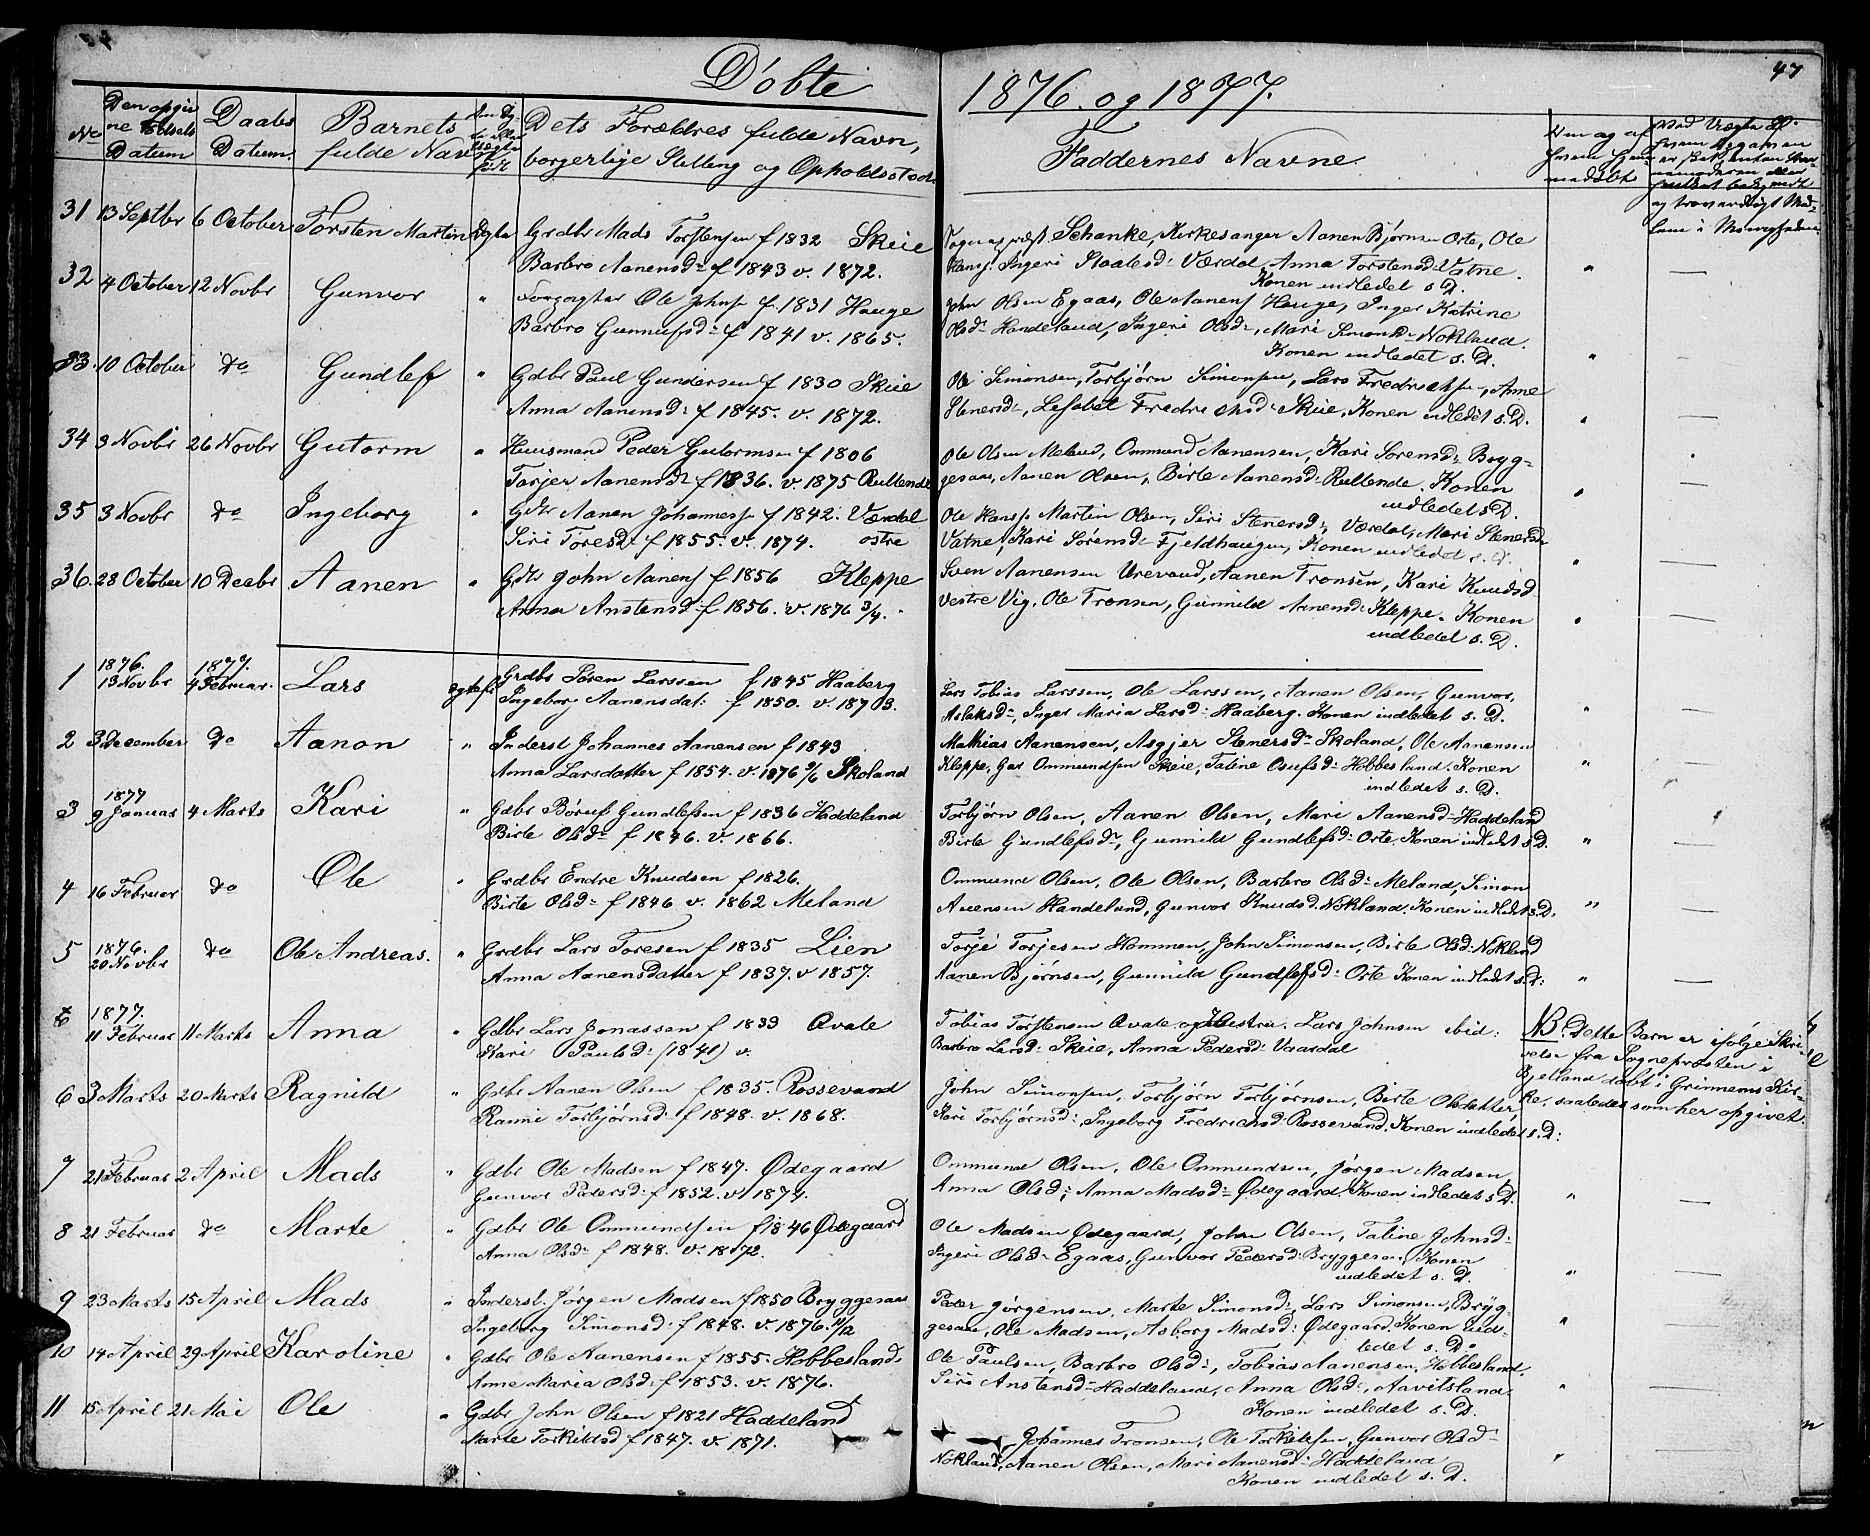 Döbte 1876. og 1877.
47
No
Den opgiv
ne Födsels
Datum
Daabs
Datum.
Barnets
fulde Navn
Dets Forældres fulde Navn,
borgerlige Stilling og Opholdssted
Faddernes Navne.
31 13 Septbr 6 October Torsten Martin Ægte Grdbr Mads Torstensen f 1832 Skeie
Barbro Aanensd: f 1843 v. 1872.
Schanke, Kirkesanger Aanen Bjørnsen Orte, Ole
Hansf. Ingeri Staalesd: Værdal, Anna Torstensd: Vatne.
Konen indledet s. D.
32 4 October 12 Novbr Gunvor " Ole Johnf f. 1831 Hauge
Barbro Gunnufsd: f 1841 v. 1865.
John Olsen Egaas, Ole Aanenf Hauge, Inger Katrine
Olsd: Handeland, Ingeri Olsd:, Mari Simonsd: Nokland.
Konen indledet s. D.
33. 10 October do Gundlef " Gdbr Paul Gundersen f 1830 Skeie
Anna Aanensd: f 1845. v. 1872.
Ole Simonsen, Torbjørn Simonsen, Lars Fredrichsen, Anne
Stenersd:, Lisabet Fredrichsd: Skeie, Konen indledet s. D.
34 3 Novbr 26 Novbr Gutorm " Huusmand Peder Gutormsen f 1806
Torjer Aanensd: f 1836. v. 1875 Rullende
Ole Olsen Meland, Ommund Aanensen, Kari Sorensd: Bryg-
gesaas, Aanen Olsen, Birte Aanensd: Rullende. Konen
indledet s. D.
35 3 Novbr do Ingeborg " Gdbr Aanen Johannesf f 1842. Værdal
Siri Toresd: f 1855. v. 1874. østre
Ole Hansf. Martin Olsen, Siri Stenersd:, Værdal, Mari Stenersd:
Vatne, Kari Sörensd: Fjeldhaugen, Konen indledet s. D.
36. 28 October 10 Decbr Aanen " Gdbr John Aanenf f 1856 Kleppe
Anna Anstensd: f 1856. v. 1876 3/4.
Sven Aanensen Urevand, Aanen Tronsen, Kari Knudsd
Vestre Vig, Ole Tronsen, Gunnild Aanensd: Kleppe. Konen
indledet s. D.
1876. 1877.
1 13 Novbr 4 Februar. Lars Grdbr Sören Larssen f 1845 Haaberg
Ingeborg Aanensdat: f 1850. v. 1873.
Lars Tobias Larssen, Ole Larssen, Aanen Olsen, Gunvor,
Aslaksd:, Inger Maria Larsd: Haaberg. Konen indledet s. D.
2 3 December do Aanon " Inderst Johannes Aanensen f 1843
Anna Larsdatter f 1854. v. 1876 9/6 Skoland
Mathias Aanensen, Asgjer Stenersd: Skoland, Ole Aanensen
Kleppe, Ommundsen Skeie, Taline Osufsd: Hobbesland. Konen
indledet s. D.
1877
3 9 Januar 4 Marts Kari " Gdbr Böruf Gundlefsen f 1836 Haddeland
Birte Olsd: f 1846. v. 1866.
Torbjörn Olsen, Aanen Olsen, Mari Aanensd: Haddeland
Birte Gundlefsd:, Gunnild Gundlefsd: Orte. Konen indledet s D.
4 16 Februar do Ole " Grdbr Endre Knudsen f 1826.
Birte Olsd: f 1846 v. 1862 Meland
Ommund Olsen, Ole Olsen, Barbro Olsd: Meland, Simon
Handeland, Gunvor Knudsd. Nökland. Konen indledet s. D.
1876.
5 20 Novbr do Ole Andreas. " Grdbr Lars Toresen f 1835 Lien
Anna Aanensdatter f 1837. v 1857.
Torje Torjesen Hommen, John Simonsen, Birte Olsd: Nokland
Aanen Bjørnsen, Gunnild Gundlefsd: Orte Konen indledet s. D:
1877.
11 Februar 11 Marts Anna " Gdbr Lars Jonassen f 1839 Qvale
Kari Paulsd: (1841) v.
Tobias Torstensen Qvale og Hustru. Lars Johnsen ibid:
Barbro Larsd: Skeie, Anna Pedersd: Vaardal
NB. Dette Barn er ifølge Skri-
velse fra Sogneprøsten i
Bjelland döbt i Grinnems Kir-
ke, saaledes som her opgivet.
6 3 Marts 20 Marts Ragnild " Gdbr Aanen Olsen f 1835. Rossevand
Ranni Torbjörnsd: f 1848. v. 1868.
John Simonsen, Torbjörn Torbjörnsen, Birte Olsdatter
Kari Torbjörnsd:, Ingeborg Fredrichsd: Rossevand. Konen indledet s. D:
7 21 Februar 2 April Mads " Gdbr Ole Madsen f 1847. Ødegaard
Gunvor Pedersd: f 1852. v. 1874.
Ommund Olsen, Ole Ommundsen, Jørgen Madsen,
Anna Olsd:, Anna Madsd: Ødegaard. Konen indledet s D.
8 21 Februar do Marte " Gdbr Ole Ommundsen f 1846 Ødegaard
Anna Olsd: f 1848. v. 1872.
Ole Madsen Ødegaard, John Olsen, Taline Johnsd:
Ingeri Olsd: Egaas, Gunvor Pedersd: Bryggesaas, Konen
indledet s. D.
9 23 Marts 15 April Mads " Inderst. Jørgen Madsen f 1850 Bryggesaas
Ingeborg Simonsd: f 1848. v. 1876. 11/12
Peder Jörgensen, Marte Simonsd:, Lars Simonsen, Bryg-
gesaas, Ole Madsen, Asborg Madsd: Ødegaard. Konen ind-
ledet s. D.
10 14 April 29 April Karoline " Gdbr Ole Aanensen f 1855. Hobbesland.
Anne Maria Olsd: f 1853. v. 1876.
Ole Paulsen, Barbro Olsd:, Tobias Aanensen, Hobbesland,
Siri Anstensd: Haddeland, Anna Olsd:, Aavitsland.
Konen indledet s. D.
11 15 April 21 Mai Ole " Gdbr John Olsen f 1821 Haddeland
Marte Torkildsd f 1847. v. 1871.
Johannes Tronsen, Ole Torkelsen, Gunvor Olsd:
Nokland, Aanen Olsen, Mari Aanensd: Haddeland
Konen indledet s. D.